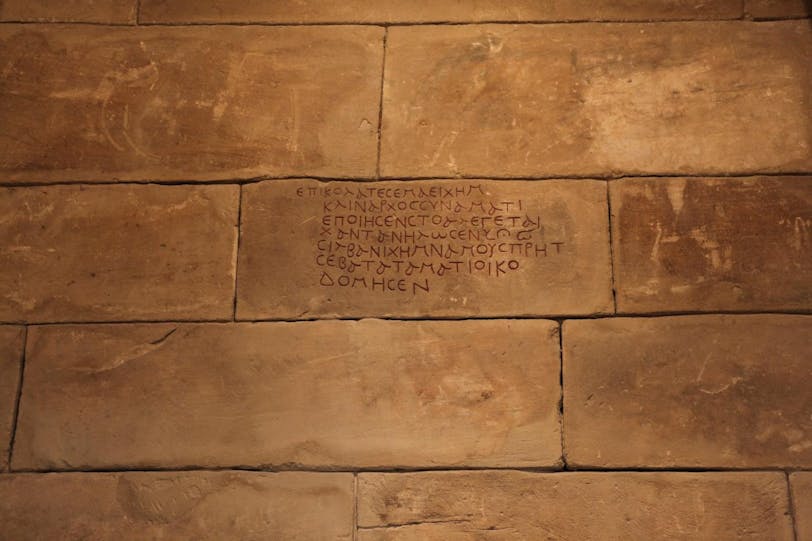 ΕΠΙΚΟΛΑΤΕϹΕΜΑΕΙΧΗΜ
ΚΑΙΝΑΡΧΟϹϹΥΝΑΜΑΤΙ
ΕΠΟΙΗϹΕΝϹΤΟΑΛΕΓΕΤΑΙ
ΧΑΝΤΑΝΗΑΩϹΕΝ
ϹΙΑΒΑΝΙΧΗΜΝΑΜΟΥϹΠΡΗΤ
ϹΕΒΑΤΑΤΑΜΑΤΙΟΙΚΟ
ΔΟΜΗϹΕΝ